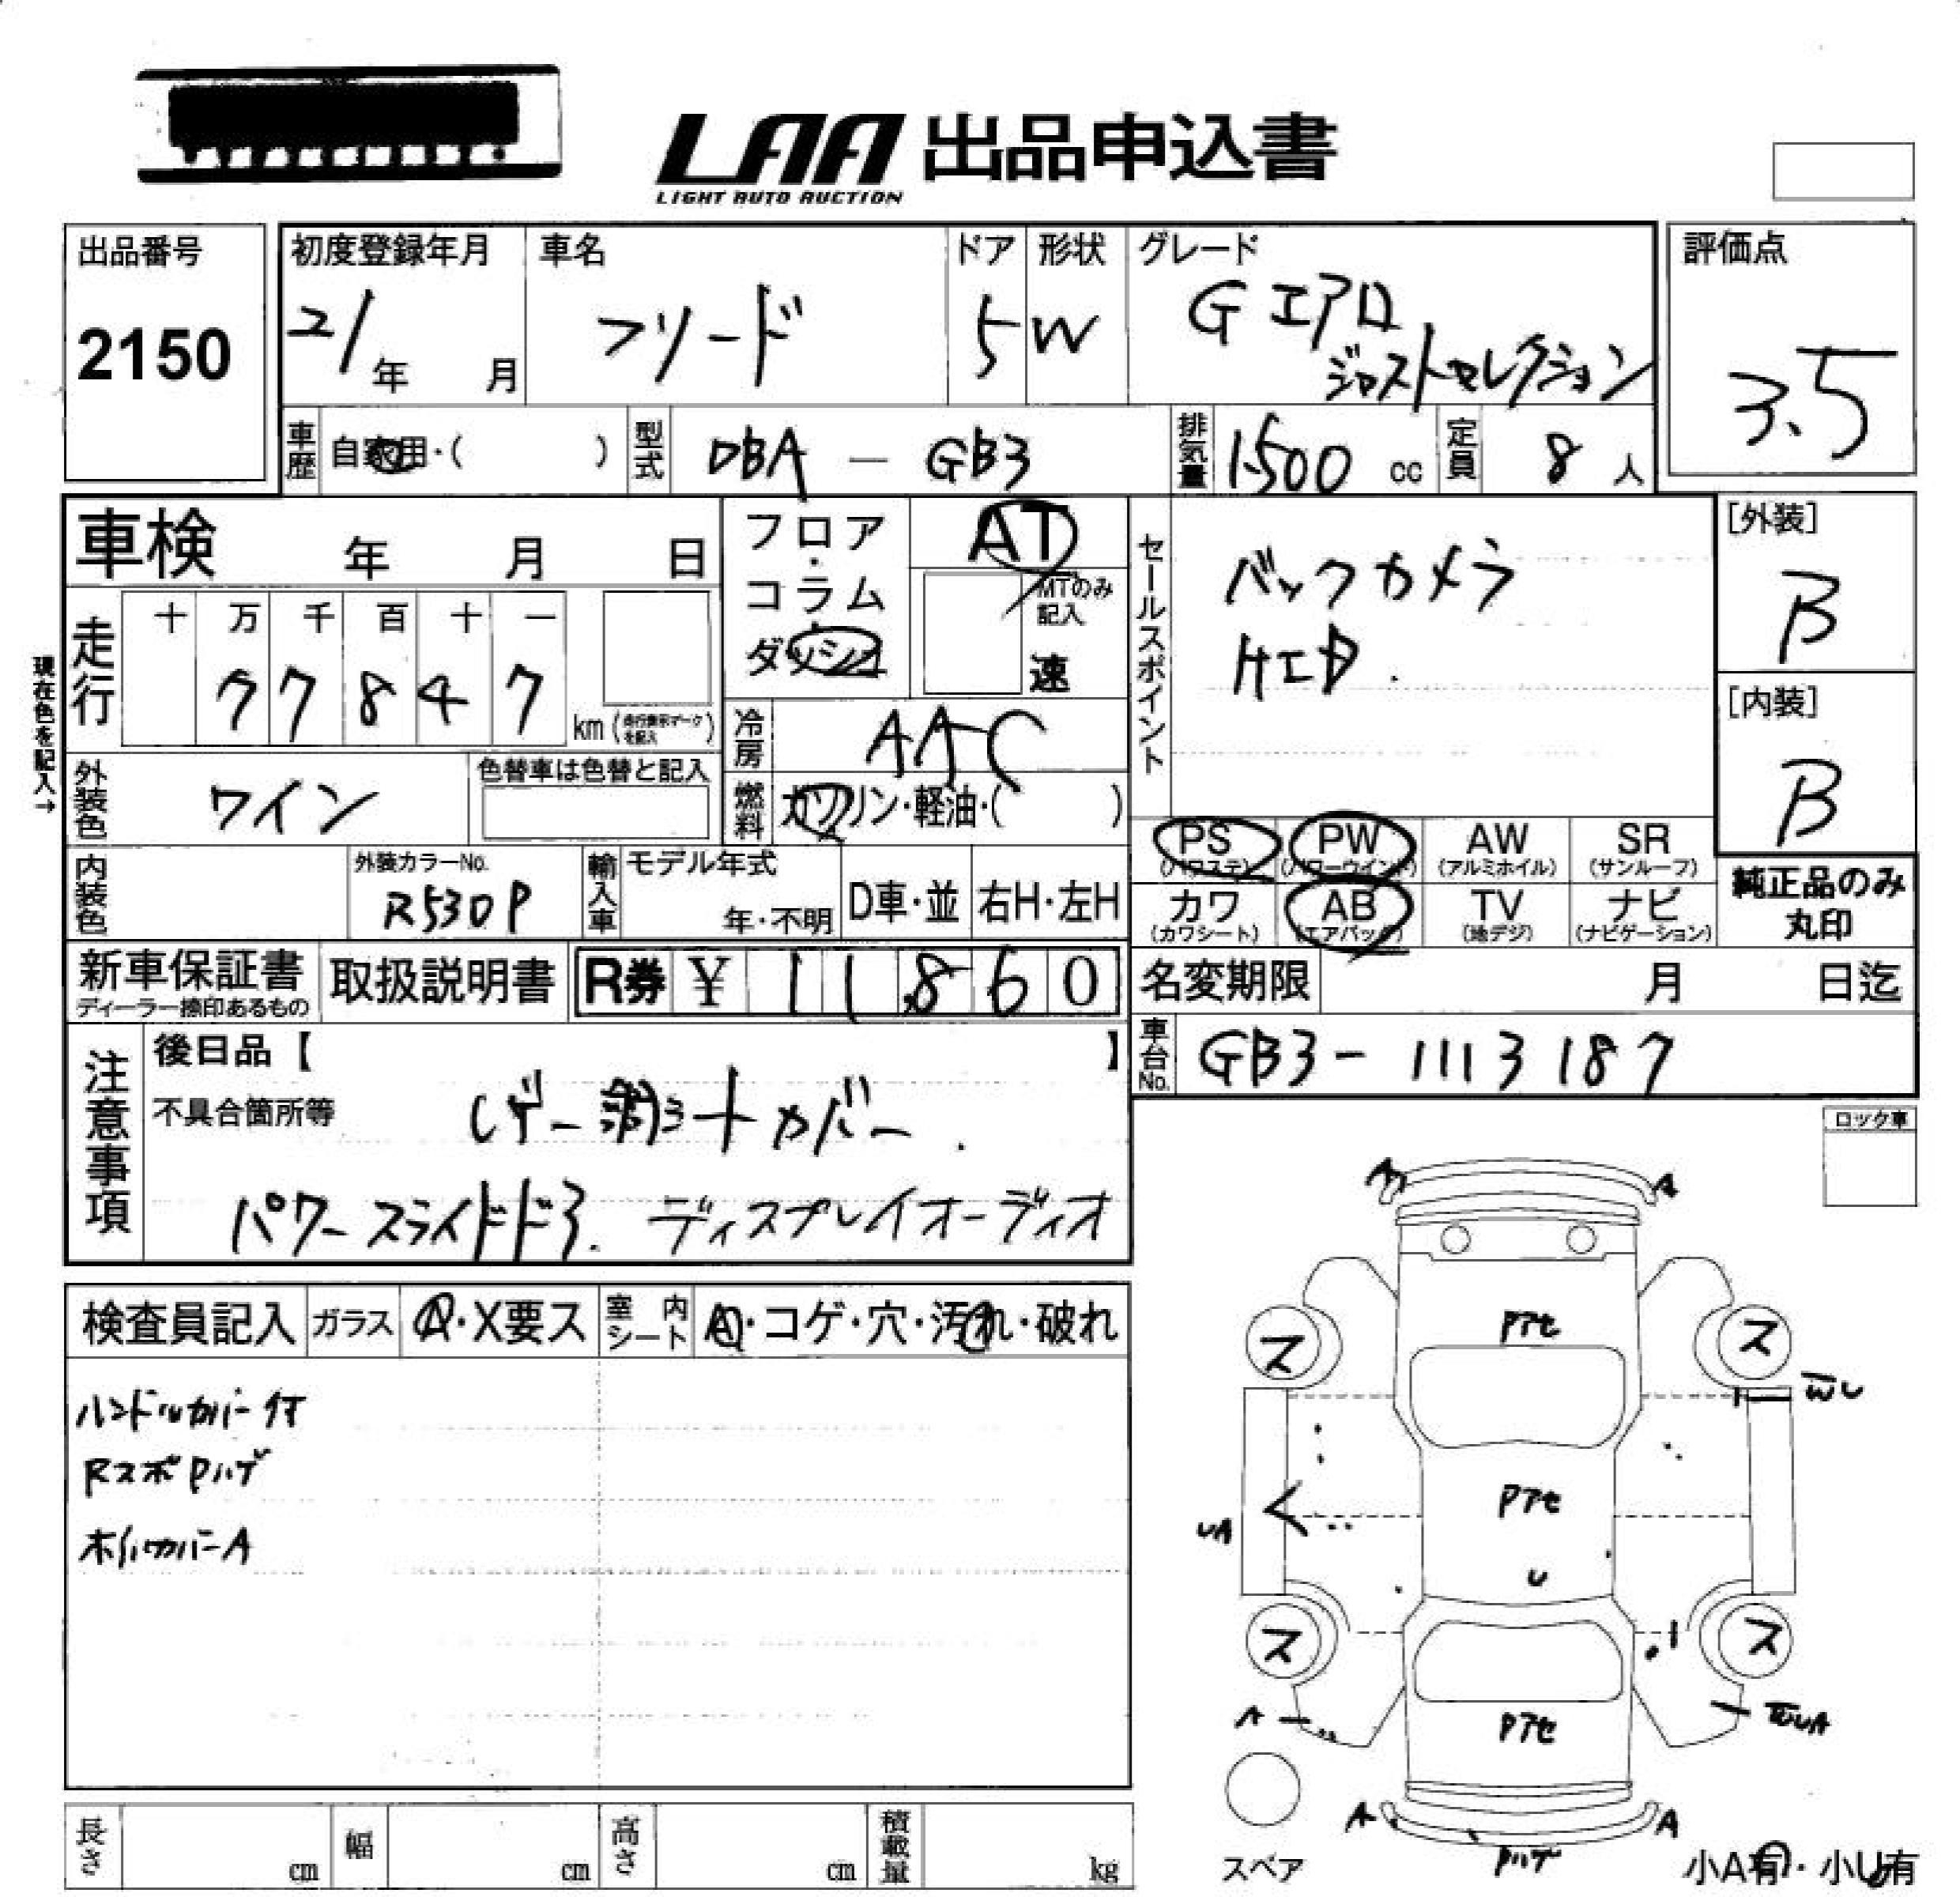 LAA 出品申込書
LIGHT AUTO AUCTION
出品番号
2150
初度登録年月
21年 月
車名
フリード
ドア
5
形状
W
グレード
G エアロ
ジャストセレクション
評価点
3.5
車歴 自家用・( )
型式 DBA - GB3
排気量 1500 cc
定員 8 人
車検 年 月 日
フロア・コラム・ダッシュ
AT
MTのみ記入
速
セールスポイント
バックカメラ
HID.
[外装]
B
[内装]
B
現在色を記入→
走行 十 万 千 百 十 一
77847 km (走行表示マークを記入)
冷房 AAC
外装色 ワイン
色替車は色替と記入
燃料 ガソリン・軽油・( )
PS (パワステ) PW (パワーウインド) AW (アルミホイル) SR (サンルーフ)
カワ (カワシート) AB (エアバッグ) TV (地デジ) ナビ (ナビゲーション)
純正品のみ丸印
内装色
外装カラーNo.
R530P
輸入車 モデル年式 年・不明 D車・並 右H・左H
新車保証書
ディーラー捺印あるもの
取扱説明書
R券 ¥ 11,860
名変期限 月 日迄
車台No. GB3-1113187
注意事項
後日品【 】
不具合箇所等
カバー.
パワースライドドア. ディスプレイオーディオ
ロック車
検査員記入 ガラス A・X要ス 室内シート A・コゲ・穴・汚れ・破れ
ハンドルカバー付
RスポPハゲ
ホイルカバーA
A A
Pアセ
ス ス
WU
Pアセ
UA
U
ス ス
A
Pアセ
A A
Pハゲ
スペア
小A有・小U有
長さ cm 幅 cm 高さ cm 積載量 kg